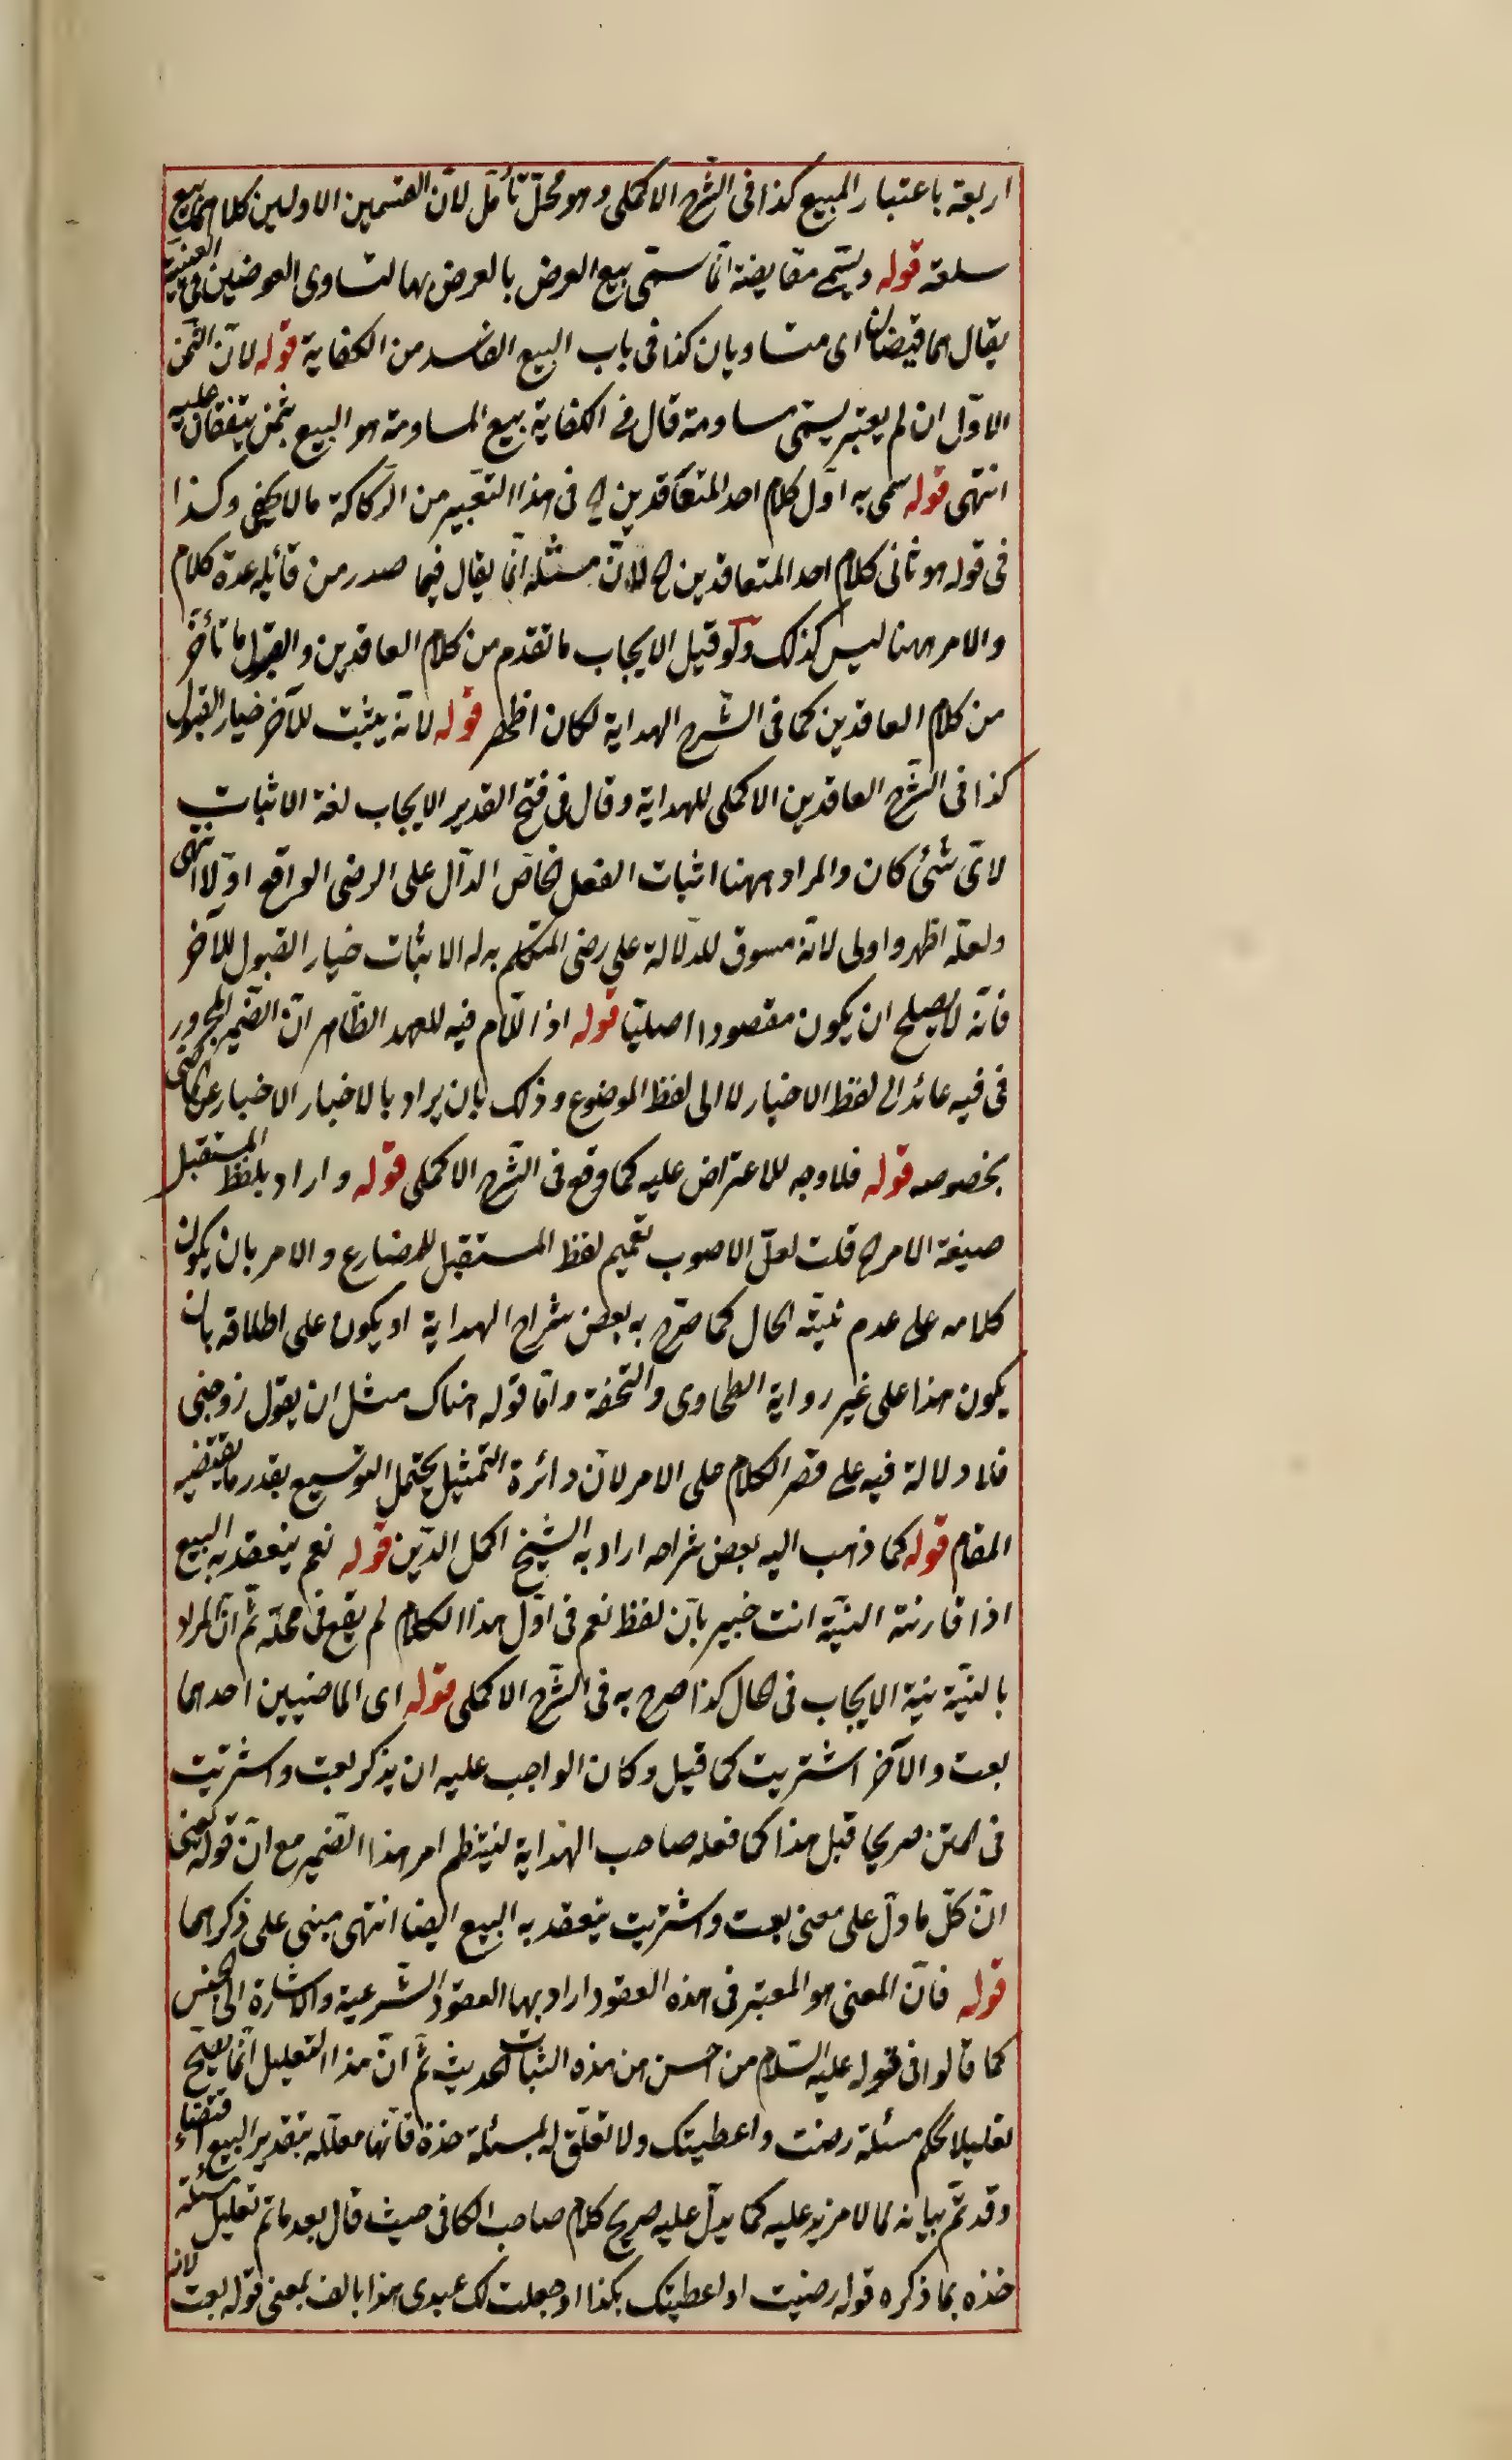 اربعة باعتبار المبيع كذا فى الشرح الاكملى وهو محلّ تأمّل لانّ القسمين الاولين كلاهما بيع
سلعة قوله ويسمى مقايضة انّما سمّى بيع العرض بالعرض بها لتساوى العوضين فى العينية
يقال هما قيضان اى متساويان كذا فى باب البيع الفاسد من الكفاية قوله لانّ الثمن
الاوّل ان لم يعتبر يسمّى مساومة قال فى الكفاية بيع المساومة هو البيع بثمن يتفقان عليه
انتهى قوله سمى به اوّل كلام احد المتعاقدين الخ فى هذا التعبير من الركاكة ما لا يخفى وكذا
فى قوله هو ثانى كلام احد المتعاقدين الخ لانّ مثله انّما يقال فيما صدر من قائله عدة كلام
والامر ههنا ليس كذلك ولو قيل الايجاب ما تقدم من كلام العاقدين والقبول ما تأخّر
من كلام العاقدين كما فى الشرح الهداية لكان اظهر قوله لانّه يثبت للآخر خيار القبول
كذا فى الشّرح العاقدين الاكملى للهداية وقال فى فتح القدير الايجاب لغة الاثبات
لاىّ شئ كان والمراد ههنا اثبات الفعل الخاصّ الدّال على الرضى الواقع اوّلا انتهى
ولعلّه اظهر واولى لانّه مسوق للدّلالة على رضى المتكلم به لا لاثبات خيار القبول للآخر
فانّه لا يصلح ان يكون مقصودا اصليّا قوله اذ اللّام فيه للعهد الظّاهر انّ الضّمير المجرور
فى فيه عائد الى لفظ الاخبار لا الى لفظ الموضوع وذلك بان يراد بالاخبار الاخبار عن الماضى
بخصوصه قوله فلا وجه للاعتراض عليه كما وقع فى الشّرح الاكملى قوله واراد بلفظ المستقبل
صيغة الامر الخ قلت لعلّ الاصوب تعميم لفظ المستقبل للمضارع والامر بان يكون
كلامه على عدم نيّة الحال كما صرّح به بعض شراح الهداية او يكون على اطلاقه بان
يكون هذا على غير رواية الطحاوى والتحفة وامّا قوله هناك مثل ان يقول زوجنى
فلا دلالة فيه على قصر الكلام على الامر لانّ دائرة التمثيل يحتمل التوسيع بقدر ما يقتضيه
المقام قوله كما ذهب اليه بعض شراحه اراد به الشيخ اكمل الدّين قوله نعم ينعقد به البيع
اذا قارنته النيّة انت خبير بانّ لفظ نعم فى اوّل هذا الكلام لم يقع فى محلّه ثمّ انّ المراد
بالنيّة نية الايجاب فى الحال كذا صرح به فى الشّرح الاكملى قوله اى الماضيين احدهما
بعت والآخر اشتريت كما قيل وكان الواجب عليه ان يذكر بعت واشتريت
فى المتن صريحا قبل هذا كما فعله صاحب الهداية لينتظم امر هذا الضّمير مع انّ قوله يعنى
انّ كلّ ما دلّ على معنى بعت واشتريت ينعقد به البيع ايضا انتهى مبنى على ذكرهما
قوله فانّ المعنى هو المعتبر فى هذه العقود اراد بها العقود الشّرعية والاشارة الى الجنس
كما قالوا فى قوله عليه السّلام من احسن من هذه البنات الحديث ثمّ انّ هذا التعليل انّما يصلح
تعليلا لحكم مسئلة رضيت واعطيتك ولا تعلّق له بمسئلة خذه فانّها معلّله بتقدير البيع اقتضاء
وقد تمّ بيانه لما لا مزيد عليه كما يدلّ عليه صريح كلام صاحب الكافى حيث قال بعد ما تم تعليل مسئلة
خذه بما ذكره قوله رضيت او اعطيتك بكذا او جعلت لك عبدى هذا بالف بمعنى قوله بعت لانه